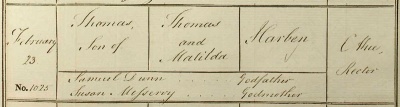 February
23
No. 1025
Thomas,
Son of
Thomas
and
Matilda
Harben
Rector
Samuel Dunn Godfather
Susan Messervy Godmother